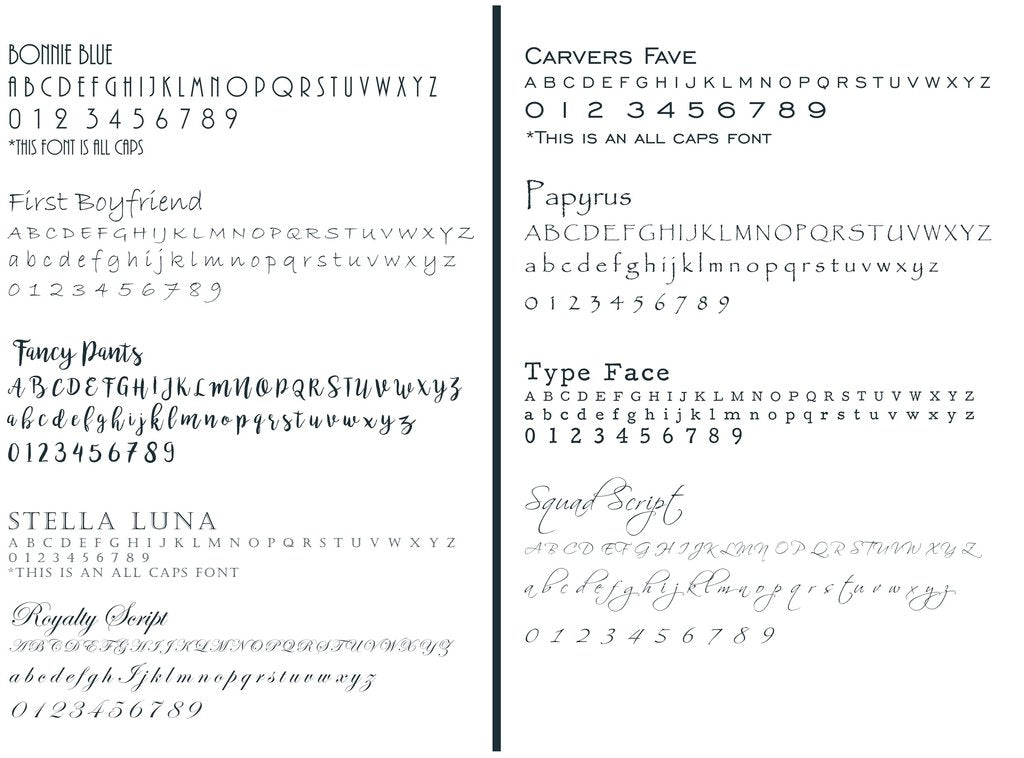 BONNIE BLUE
A B C D E F G H I J K L M N O P Q R S T U V W X Y Z
0 1 2 3 4 5 6 7 8 9
*THIS FONT IS ALL CAPS
First Boyfriend
A B C D E F G H I J K L M N O P Q R S T U V W X Y Z
a b c d e f g h i j k l m n o p q r s t u v w x y z
0 1 2 3 4 5 6 7 8 9
Fancy Pants
A B C D E F G H I J K L M N O P Q R S T U V W X Y Z
a b c d e f g h i j k l m n o p q r s t u v w x y z
0 1 2 3 4 5 6 7 8 9
STELLA LUNA
A B C D E F G H I J K L M N O P Q R S T U V W X Y Z
0 1 2 3 4 5 6 7 8 9
*THIS IS AN ALL CAPS FONT
Royalty Script
A B C D E F G H I J K L M N O P Q R S T U V W X Y Z
a b c d e f g h I j k l m n o p q r s t u v w x y z
0 1 2 3 4 5 6 7 8 9
CARVERS FAVE
A B C D E F G H I J K L M N O P Q R S T U V W X Y Z
0 1 2 3 4 5 6 7 8 9
*THIS IS AN ALL CAPS FONT
Papyrus
A B C D E F G H I J K L M N O P Q R S T U V W X Y Z
a b c d e f g h i j k l m n o p q r s t u v w x y z
0 1 2 3 4 5 6 7 8 9
Type Face
A B C D E F G H I J K L M N O P Q R S T U V W X Y Z
a b c d e f g h i j k l m n o p q r s t u v w x y z
0 1 2 3 4 5 6 7 8 9
Squad Script
A B C D E F G H I J K L M N O P Q R S T U V W X Y Z
a b c d e f g h i j k l m n o p q r s t u v w x y z
0 1 2 3 4 5 6 7 8 9